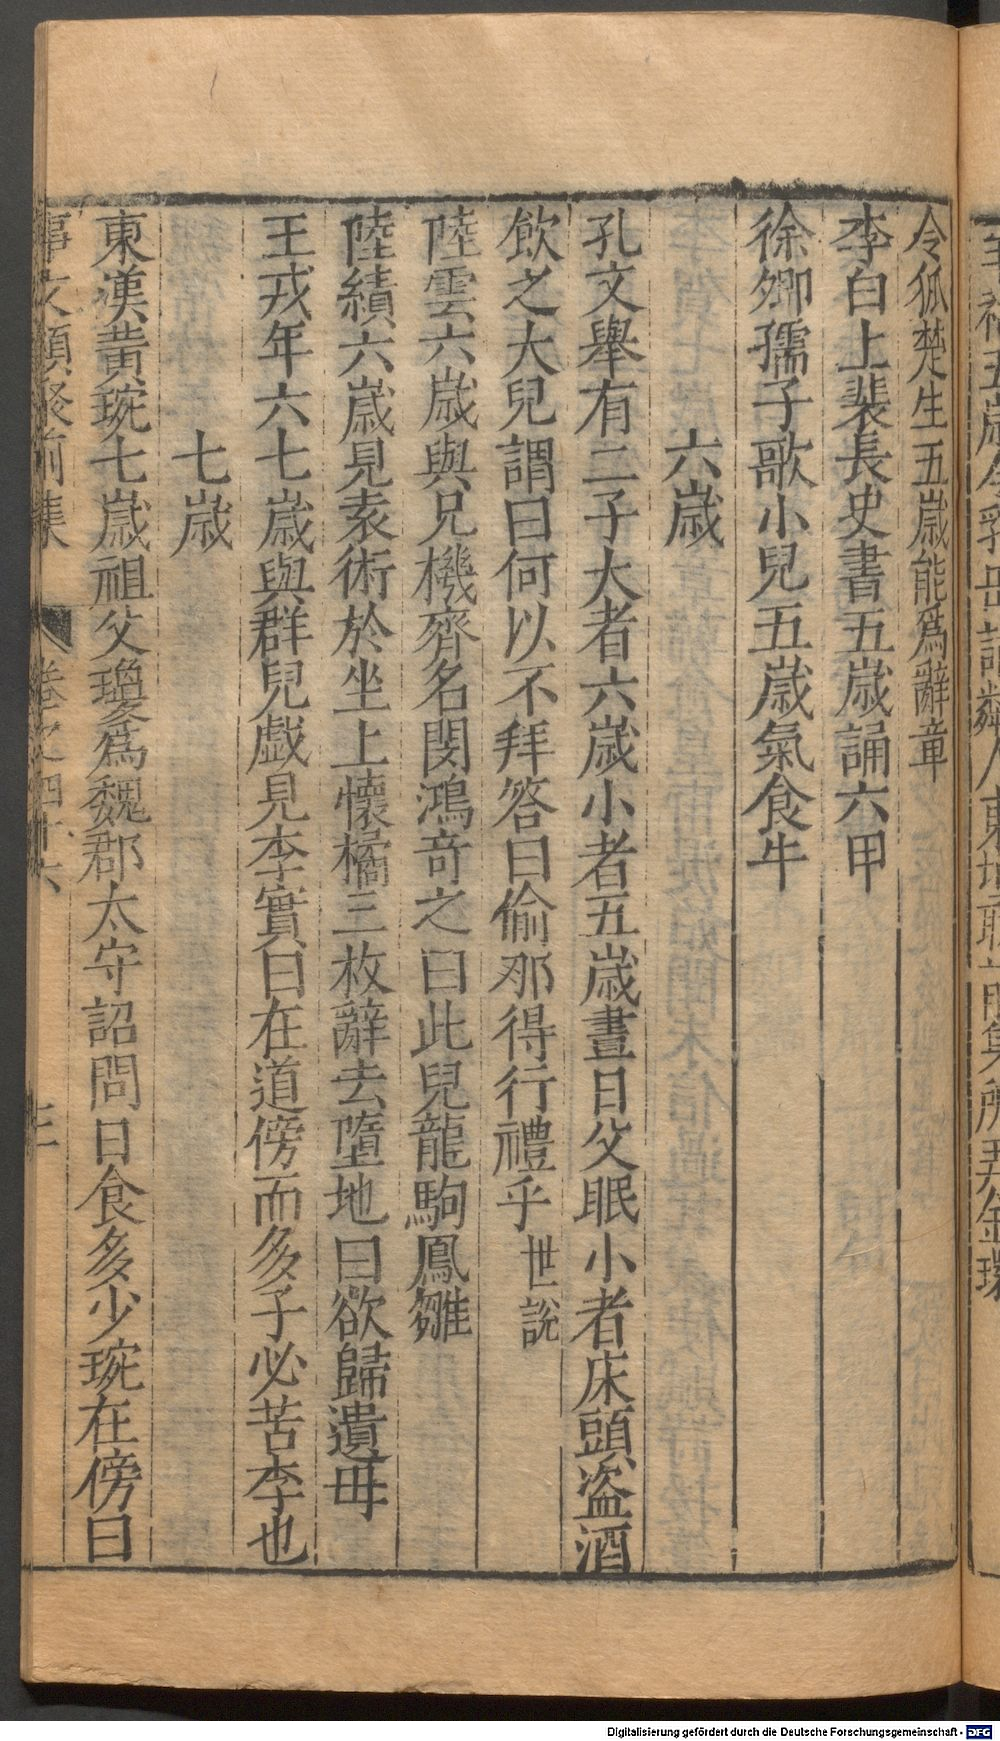 令狐楚生五歲能爲辭章
李白上裴長史書五歲誦六甲
徐卿孺子歌小兒五歲氣食牛
六歲
孔文舉有二子大者六歲小者五歲晝日父眠小者床頭盗酒
飲之大兒謂曰何以不拜答曰偷那得行禮乎世說
陸雲六歲與兄機齊名閔鴻奇之曰此兒龍駒鳳雛
陸績六歲見袁術於坐上懷橘三枚辭去墮地曰欲歸遺母
王戎年六七歲與群兒戲見李實曰在道傍而多子必苦李也
七歲
東漢黄琬七歲祖父瓊爲魏郡太守詔問日食多少琬在傍曰
事文類聚前集 卷之四十六
Digitalisierung gefördert durch die Deutsche Forschungsgemeinschaft - DFG